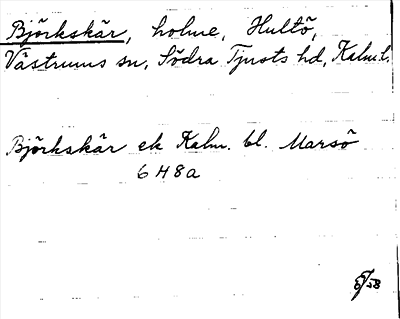 Björkskär, holme, Hultö,
Västrums sn, Södra Tjusts hd, Kalm.l.
Björkskär ek Kalm. bl. Marsö
6 H 8 a